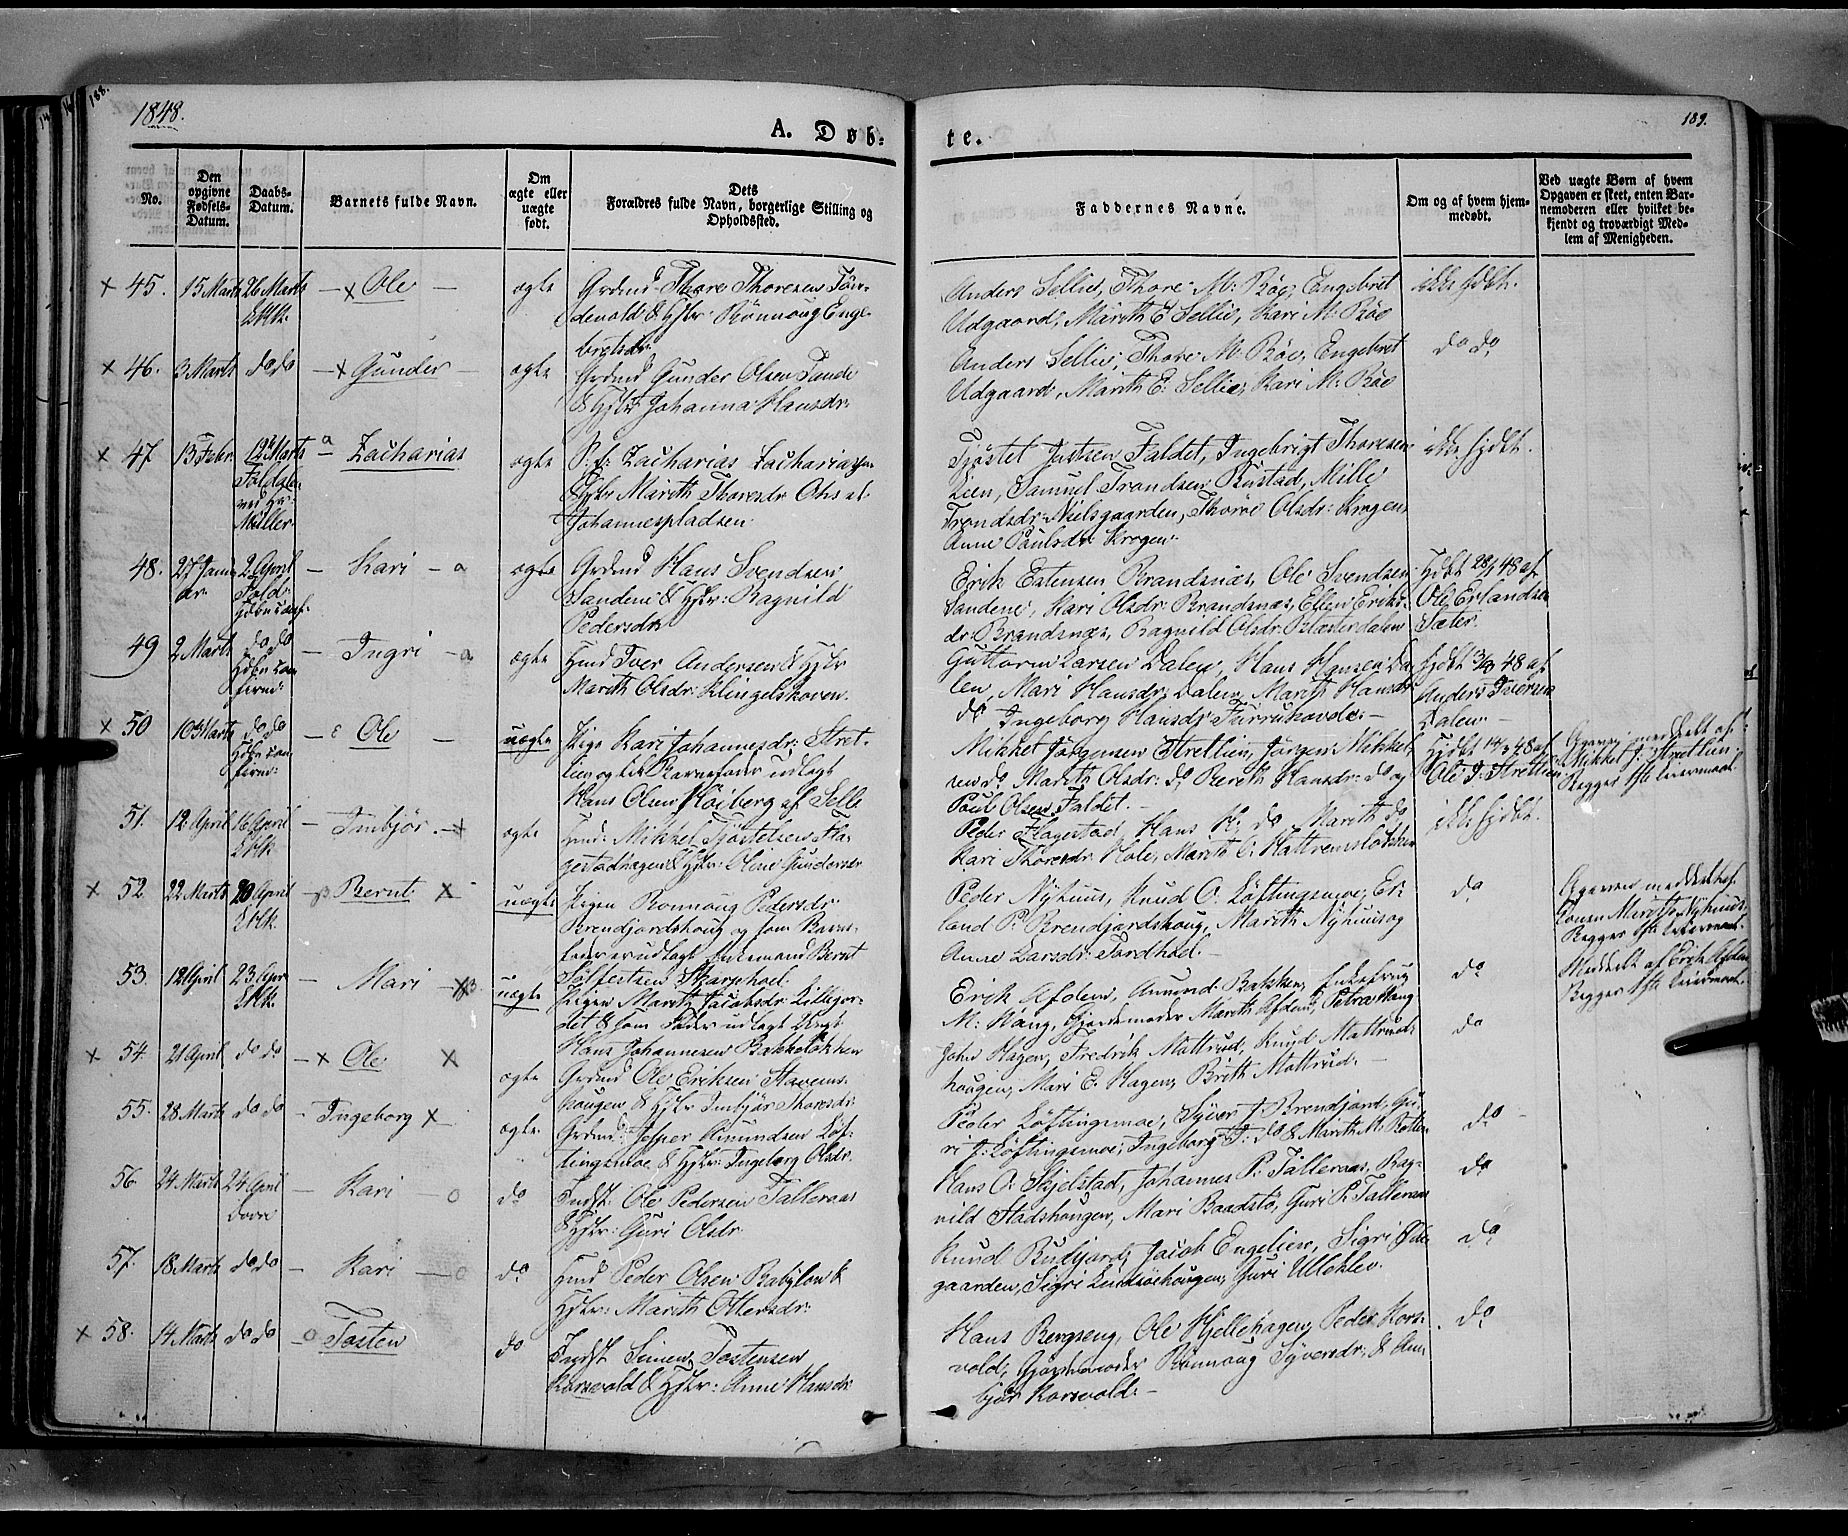 188.
1848.
A. Døb-
te.
189.
No.
Den opgivne Fødsels-Datum.
Daabs-Datum.
Barnets fulde Navn.
Om ægte eller uægte født.
Dets Forældres fulde Navn, borgerlige Stilling og Opholdssted.
Faddernes Navne.
Om og af hvem hjem-medøbt.
Ved uægte Børn af hvem Opgaven er skeet, enten Bar-nemoderen eller hvilket be-kjendt og troværdigt Med-lem af Menigheden.
× 45. 15 Marts 26 Marts — × Ole — ægte
Thore Thoresen
& Hstr: Rønnoug Enge-
bretsdr:
Anders Sellie, Thore M. Røe, Engebret
Udgaard, Marith E. Sellie, Kari M. Røe
ikke hjdbt.
× 46. 3 Marts do do — × Gunder — ægte
Grdmd Gunder Olsen Tande
& Hstr: Johanna Hansdr:
Anders Sellie, Thore M. Røe, Engebret
Udgaard, Marith E. Sellie, Kari M. Røe
do do
× 47. 13 Febr. 12 Marts Zacharias ægte
Müller
Zacharias Zachariasen
& Hstr Marith Thoresdr
Johannespladsen.
Tjøstel Jertsen Faldet, Ingebrigt Thoresen
Lien, Samuel Trondsen Rustad, Milli
Trondsdr: Nielsgaarden, Thorø Olsdr: Krogen,
Anne Paulsdr Krogen.
ikke hjdbt.
48. 27 Janu-ar. 2 April — Kari — a ægte
Grdmd Hans Svendsen
Sandene & Hstr: Ragnild
Pedersdr
Erik Estensen Brandsnæs, Ole Svendsen
Sandene, Kari Olsdr: Brandsnæs, Ellen Eriks-
dr Brandsnæs, Ragnild Olsdr:
Hjdbt 28/1 48 af
Ole Erlandsen
Sæter.
49 2 Marts do do — Ingri — a ægte
Hmd Iver Andersen & Hstr
Marith Olsdr: Klingelshoven.
Guttorm Larsen Dalen, Hans Hansen Da-
len, Mari Hansdr: Dalen, Marith Hansdr
do Ingeborg Hansdr Furruhovde. —
Hjdbt 3/3 48 af
Anders Iversen
Dalen. —
× 50 10 Marts do do Ole — uægte
Pige Kari Johannesdr: Stret-
lien og til Barnefader udlagt
Hans Olsen Høiberg af Selle
Mikkel Jørgensen Strettien, Jørgen Mikkel-
sen do, Marith Olsdr: do, Bereth Hansdr: do og
Paul Olsen Faldet. —
48 af
Ole J. Strettien
meddelt af
Mikkel J. Strettien.
Begges 1ste Leiermaal.
51. 12 April 16 April — Imbjør ægte
Hmd: Mikkel Tjøstelsen Fla-
gestadhagen & Hstr: Oline Gundersdr
Peder Flagestad, Hans H. do Marith do
Kari Thoresdr Hole, Marith
ikke hjdbt.
× 52. 22 Marts 20 April Bernt × uægte
Pigen Rønnoug Pedersdr
Brendjordshoug og som Barne-
fader er udlagt Enkemand Bernt
Peder Nyhuus, Knud O. Løftingsmoe, Er-
land P. Brendjordshoug, Marith Nyhuus og
Anne Larsdr:
do
Opgaven meddelt af
Konen Marith Nyhuus.
Begges 1ste Leiermaal.
53. 12 April 23 Apr — Mari uægte
Pigen Marith Jacobsdr Lillejor-
det & som Fader udlagt Ungk:
Hans Johannesen Bakkeløkken
Erik Afdem, Amund Bakken, Enkefrue
M. Haug, Gjordemoder Marith Afdem, Petra Haug
do
Meddelt af Erik Afdem
Begges 1ste Leiermaal.
× 54. 21 April do do — × Ole × ægte
Grdmd Ole Eriksen Stavems-
hougen & Hstr Imbjør Thoresdr:
John Hagen, Fredrik Mottrud, Knud Mottrud-
hougen, Mari E. Hagen, Brith Mottrud. —
do
55. 28 Marts do do - Ingeborg × ægte
Grdmd: Jesper Amundsen Løf-
tingsmoe & Hstr: Ingeborg Olsdr.
Peder Løftingsmoe, Syver J. Brendjord, Gu-
ri J. Løftingsmoe, Ingeborg J. do & Marith M.
do
56. 24 Marts 24 April — Kari — o do
Dovre
Indst. Ole Pedersen Talleraas
& Hstr: Guri Olsdr
Hans O. Skjelstad, Johannes P. Talleraas, Rag-
nild Stadshougen, Mari Baadstø, Guri P. Talleraas
do
57. 18 Marts do do — Kari — o do
Hmd Peder Olsen Babylon &
Hstr: Marith Ottersdr:
Knud Budjord, Jacob Engelien, Sigri Øde-
gaarden, Sigri Guri Ulleklev.
do
× 58. 14 Marts do do — o Tosten do
Indst Simen Tostensen
Korsvold & Hstr: Anne Hansdr
Hans Bergseng, Ole Hjellehagen, Peder Kors-
vold, Gjordemoder Rønnoug Syversdr: & Im-
bjør Korsvold. —
do